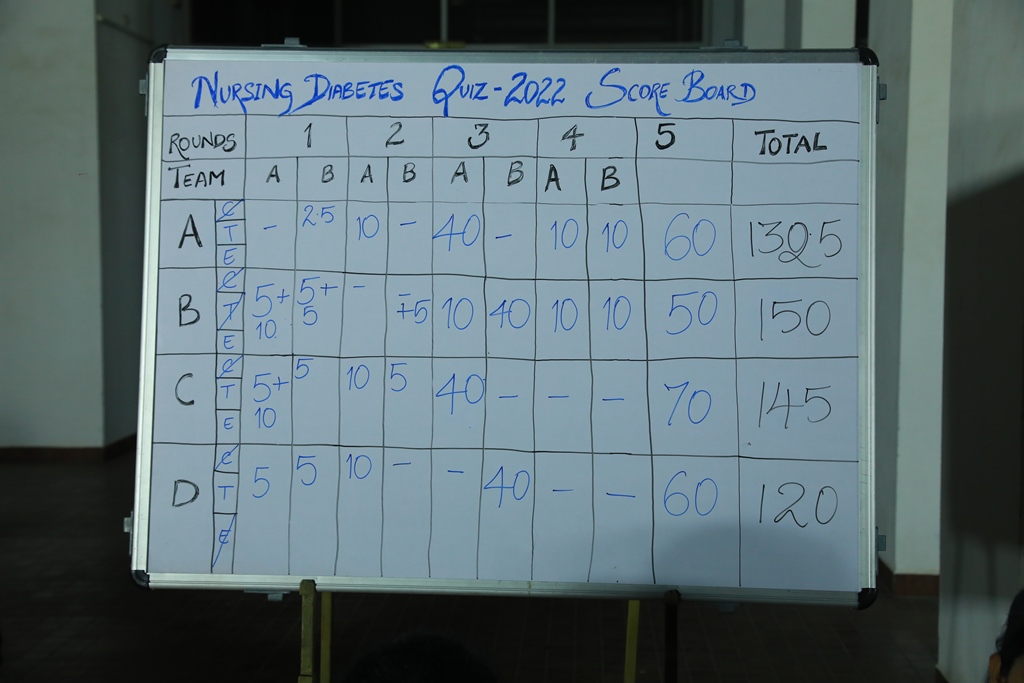 NURSING DIABETES QUIZ-2022 SCORE BOARD
ROUNDS 1 2 3 4 5 TOTAL
TEAM A B A B A B A B
A C T E - 2.5 10 - 40 - 10 10 60 132.5
B C T E 5+10 5+5 - -+5 10 40 10 10 50 150
C C T E 5+10 5 10 5 40 - - - 70 145
D C T E 5 5 10 - - 40 - - 60 120